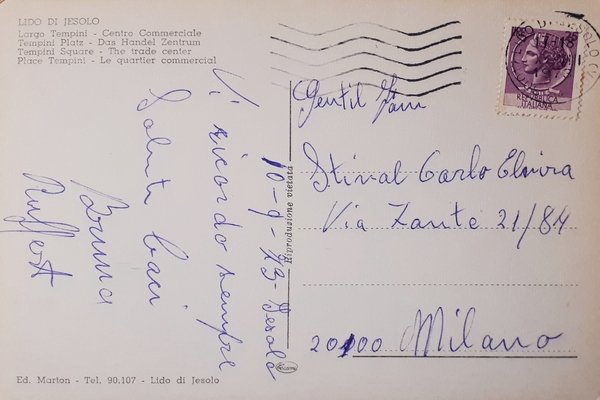 LIDO DI JESOLO
Largo Tempini - Centro Commerciale
Tempini Platz - Das Handel Zentrum
Tempini Square - The trade center
Place Tempini - Le quartier commercial
10-9-73- Jesolo
Vi ricordo sempre
Saluti baci
Bruna
Riproduzione vietata
Gentil Fam
Stival Carlo Elvira
Via Zante 21/84
20100 Milano
REPUBBLICA
ITALIANA
Ed. Marton - Tel. 90.107 - Lido di Jesolo